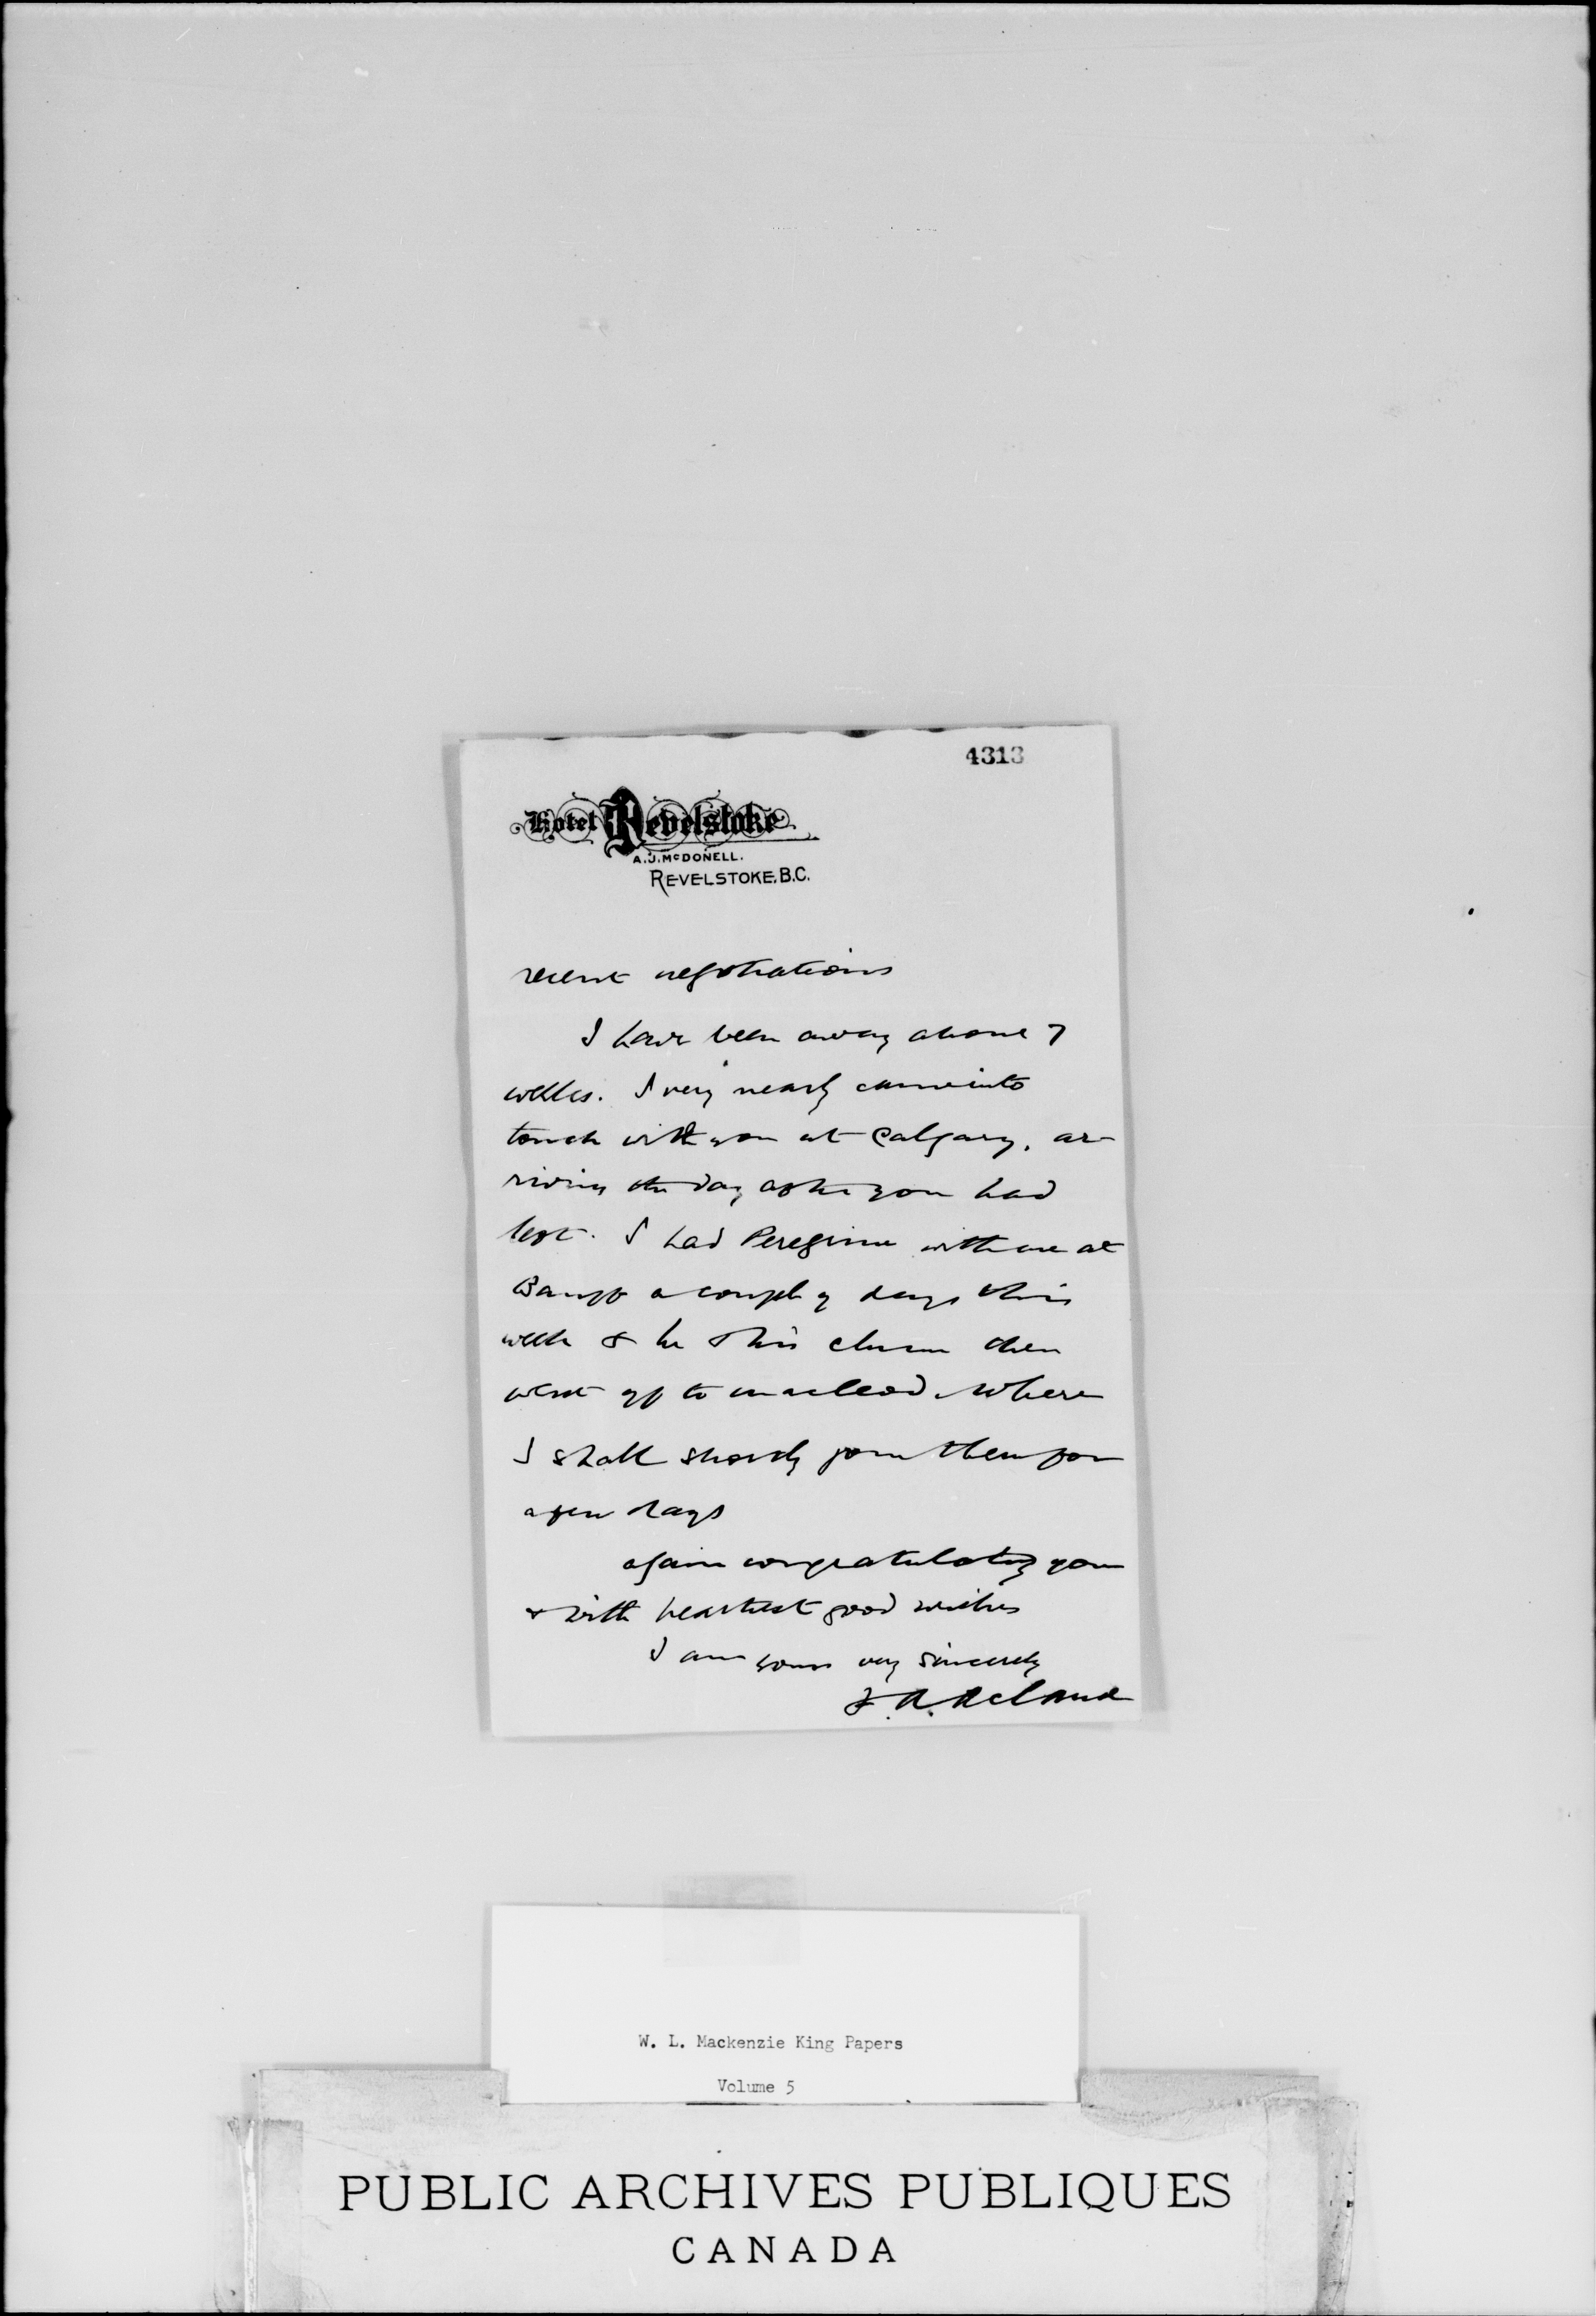 4313
Hotel Revelstoke
A.J. McDONELL.
REVELSTOKE, B.C.
recent negotiations
I have been away about 7
weeks. I very nearly came into
touch with you at Calgary, ar-
riving the day after you had
left. I had Peregrine with me at
Banff a couple of days this
week & he & his chum then
went off to Macleod where
I shall shortly join them for
a few days
again congratulating you
& with heartiest good wishes
I am yours very sincerely
F. A. Acland
W. L. Mackenzie King Papers
Volume 5
PUBLIC ARCHIVES PUBLIQUES
CANADA